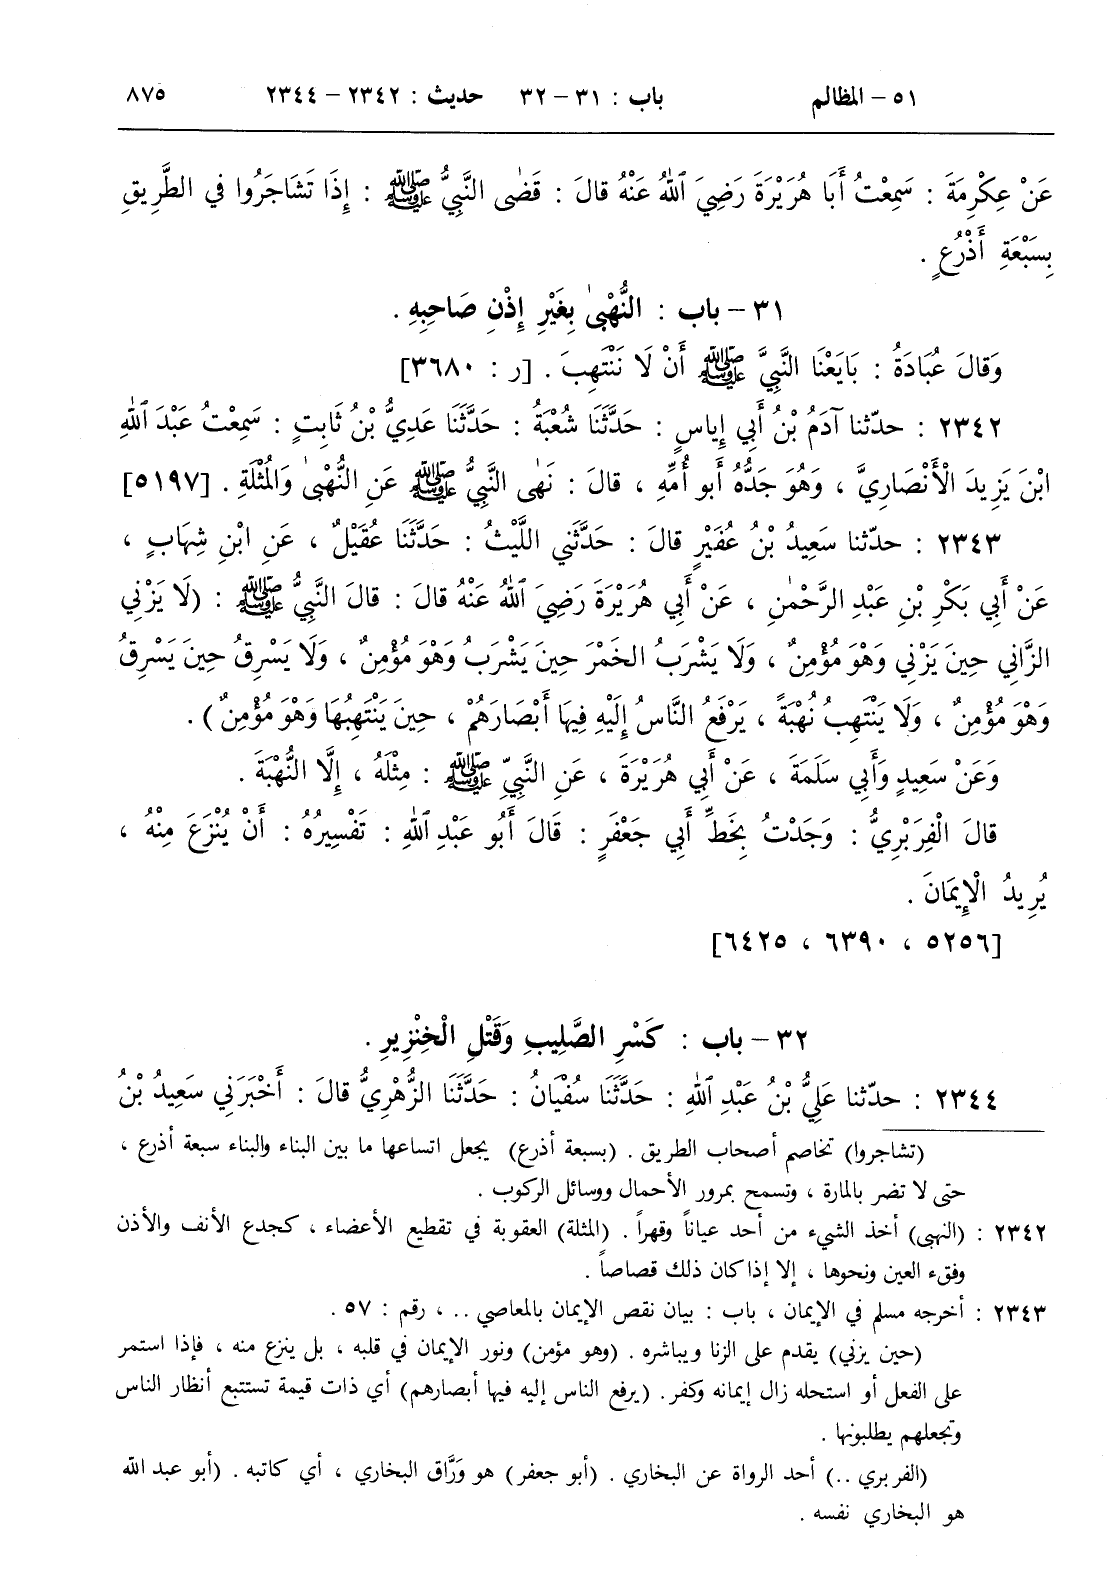 ٥١ – المظالم باب : ٣١ – ٣٢ حديث : ٢٣٤٢ – ٢٣٤٤ ٨٧٥
عَنْ عِكْرِمَةَ : سَمِعْتُ أَبَا هُرَيْرَةَ رَضِيَ ٱللهُ عَنْهُ قالَ : قَضٰى النَّبِيُّ ﷺ : إِذَا تَشَاجَرُوا في الطَّرِيقِ
بِسَبْعَةِ أَذْرُعٍ .
٣١ – باب : النُّهْبَىٰ بِغَيْرِ إِذْنِ صَاحِبِهِ .
وَقالَ عُبَادَةُ : بَايَعْنَا النَّبِيَّ ﷺ أَنْ لَا نَنْتَهِبَ . [ر : ٣٦٨٠]
٢٣٤٢ : حدّثنا آدَمُ بْنُ أَبِي إِياسٍ : حَدَّثَنَا شُعْبَةُ : حَدَّثَنَا عَدِيُّ بْنُ ثَابِتٍ : سَمِعْتُ عَبْدَ ٱللهِ
ابْنَ يَزِيدَ الْأَنْصَارِيَّ ، وَهُوَ جَدُّهُ أَبو أُمِّهِ ، قالَ : نَهٰى النَّبِيُّ ﷺ عَنِ النُّهْبَىٰ وَالمُثْلَةِ . [٥١٩٧]
٢٣٤٣ : حدّثنا سَعِيدُ بْنُ عُفَيْرٍ قالَ : حَدَّثَنِي اللَّيْثُ : حَدَّثَنَا عُقَيْلٌ ، عَنِ ابْنِ شِهَابٍ ،
عَنْ أَبِي بَكْرِ بْنِ عَبْدِ الرَّحْمٰنِ ، عَنْ أَبِي هُرَيْرَةَ رَضِيَ ٱللهُ عَنْهُ قالَ : قالَ النَّبِيُّ ﷺ : (لَا يَزْنِي
الزَّانِي حِينَ يَزْنِي وَهْوَ مُؤْمِنٌ ، وَلَا يَشْرَبُ الخَمْرَ حِينَ يَشْرَبُ وَهْوَ مُؤْمِنٌ ، وَلَا يَسْرِقُ حِينَ يَسْرِقُ
وَهْوَ مُؤْمِنٌ ، وَلَا يَنْتَهِبُ نُهْبَةً ، يَرْفَعُ النَّاسُ إِلَيْهِ فِيهَا أَبْصَارَهُمْ ، حِينَ يَنْتَهِبُهَا وَهْوَ مُؤْمِنٌ) .
وَعَنْ سَعِيدٍ وَأَبِي سَلَمَةَ ، عَنْ أَبِي هُرَيْرَةَ ، عَنِ النَّبِيِّ ﷺ : مِثْلَهُ ، إِلَّا النُّهْبَةَ .
قالَ الْفِرَبْرِيُّ : وَجَدْتُ بِخَطِّ أَبِي جَعْفَرٍ : قَالَ أَبُو عَبْدِ ٱللهِ : تَفْسِيرُهُ : أَنْ يُنْزَعَ مِنْهُ ،
يُرِيدُ الْإِيمَانَ .
[٥٢٥٦ ، ٦٣٩٠ ، ٦٤٢٥]
٣٢ – باب : كَسْرِ الصَّلِيبِ وَقَتْلِ الْخِنْزِيرِ .
٢٣٤٤ : حدّثنا عَلِيُّ بْنُ عَبْدِ ٱللهِ : حَدَّثَنَا سُفْيَانُ : حَدَّثَنَا الزُّهْرِيُّ قالَ : أَخْبَرَنِي سَعِيدُ بْنُ
(تشاجروا) تخاصم أصحاب الطريق . (بسبعة أذرع) يجعل اتساعها ما بين البناء والبناء سبعة أذرع ،
حتى لا تضر بالمارة ، وتسمح بمرور الأحمال ووسائل الركوب .
٢٣٤٢ : (النهبى) أخذ الشيء من أحد عياناً وقهراً . (المثلة) العقوبة في تقطيع الأعضاء ، كجدع الأنف والأذن
وفقء العين ونحوها ، إلا إذا كان ذلك قصاصاً .
٢٣٤٣ : أخرجه مسلم في الإيمان ، باب : بيان نقص الإيمان بالمعاصي .. ، رقم : ٥٧ .
(حين يزني) يقدم على الزنا ويباشره . (وهو مؤمن) ونور الإيمان في قلبه ، بل ينزع منه ، فإذا استمر
على الفعل أو استحله زال إيمانه وكفر . (يرفع الناس إليه فيها أبصارهم) أي ذات قيمة تستتبع أنظار الناس
وتجعلهم يطلبونها .
(الفربري ..) أحد الرواة عن البخاري . (أبو جعفر) هو وَرَّاق البخاري ، أي كاتبه . (أبو عبد الله
هو البخاري نفسه .